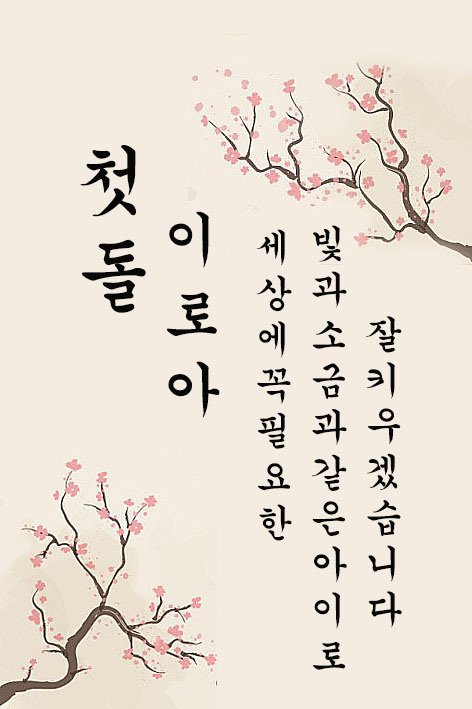 첫돌
이로아
세상에꼭필요한
빛과소금과같은아이로
잘키우겠습니다